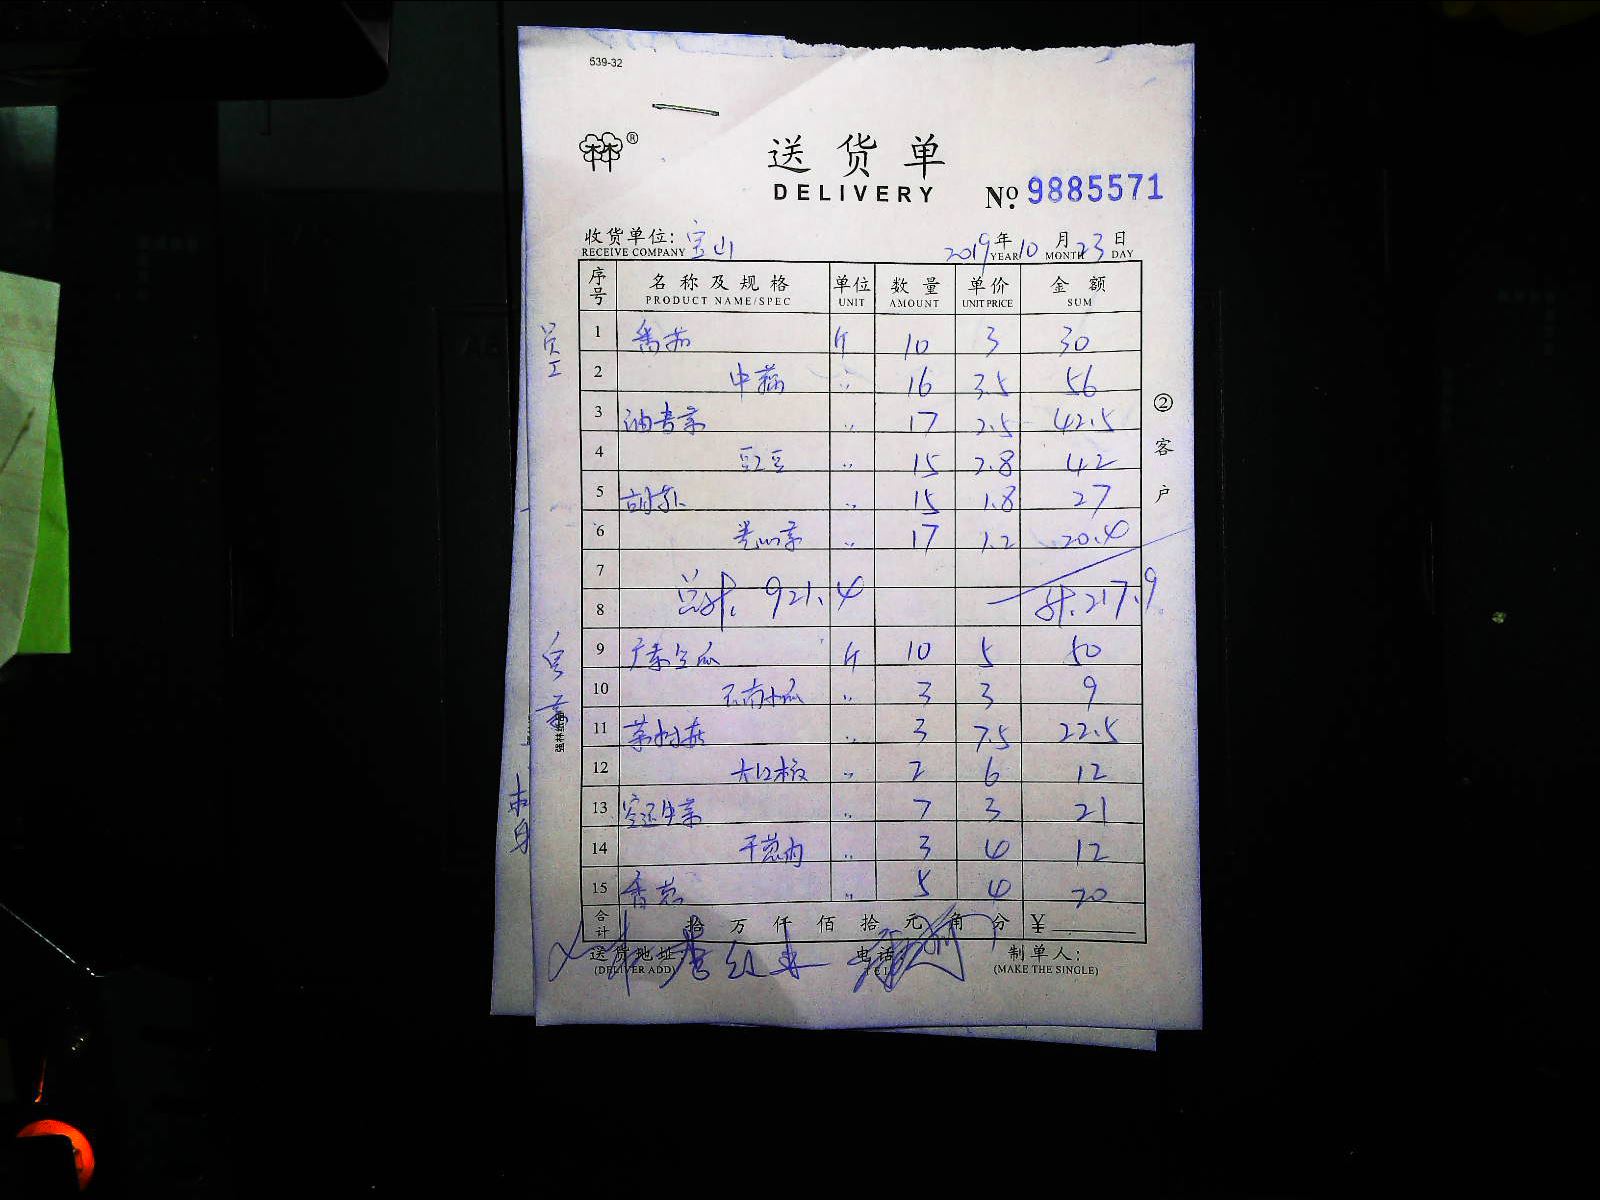 539-32
®
送货单
DELIVERY
№ 9885571
收货单位: 宝山
RECEIVE COMPANY
2019 年 10 月 23 日
YEAR MONTH DAY
序号 名称及规格 单位 数量 单价 金额
PRODUCT NAME/SPEC UNIT AMOUNT UNIT PRICE SUM
员工
1 番茄 斤 10 3 30
2 中藕 〃 16 3.5 56
3 油麦菜 〃 17 2.5 42.5
4 豇豆 〃 15 2.8 42
5 〃 15 1.8 27
6 〃 17 1.2 20.4
7
8 总计. 921.4 计.217.9
9 瓜 斤 10 5 50
10 〃 3 3 9
11 茶树菇 〃 3 7.5 22.5
12 〃 2 6 12
13 〃 7 3 21
14 干葱肉 〃 3 4 12
15 香葱 〃 5 4 20
合计 拾 万 仟 佰 拾 元 角 分 ¥
送货地址: 电话 制单人:
(DELIVER ADD) TEL (MAKE THE SINGLE)
②客户